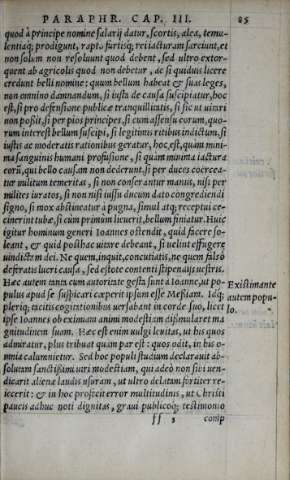 PARAPHR. CAP. III. 85
quod à principe nomine salarij datur, scortis, alea, temu-
lentiaq; prodigunt, raptu furtisq; rei iacturam sarciunt, et
non solum non resoluunt quod debent, sed ultro extor-
quent ab agricolis quod non debetur, ac si quiduis licere
credunt belli nomine: quum bellum habeat & suas leges,
non omnino damnandum, si iusta de causa suscipiatur, hoc
est, si pro defensione publicæ tranquillitatis, si sic ut uitari
non possit, si per pios principes, si cum assensu eorum, quo-
rum interest bellum suscipi, si legitimis ritibus indictum, si
iustis ac moderatis rationibus geratur, hoc est, quàm mini-
ma sanguinis humani profusione, si quàm minima iactura
eorū, qui bello causam non dederunt, si per duces coercea-
tur militum temeritas, si non conserantur manus, nisi per
milites iuratos, si non nisi iussu ducum dato congrediendi
signo, si mox abstineatur à pugna, simul atq; receptui ce-
cinerint tubæ, si cùm primùm licuerit, bellum finiatur. Huic
igitur hominum generi Ioannes ostendit, quid facere so-
leant, & quid posthac uitare debeant, si uelint effugere
uindictam dei. Ne quem, inquit, concutiatis, ne quem falsò
deferatis lucri causa, sed estote contenti stipendijs uestris.
Hæc autem tanta cum autoritate gesta sunt à Ioanne, ut po-
Existimante
pulus apud se suspicari cœperit ipsum esse Messiam. Idq;
autem popu-
plerisq; tacitis cogitationibus uersabant in corde suo, licet
lo.
ipse Ioannes ob eximiam animi modestiam dissimularet ma
gnitudinem suam. Hæc est enim uulgi leuitas, ut his quos
admiratur, plus tribuat quàm par est: quos odit, in his o-
mnia calumnietur. Sed hoc populi studium declarauit ab-
solutam sanctissimi uiri modestiam, qui adeò non sibi uen-
dicarit alienæ laudis usuram, ut ultro delatam fortiter re-
iecerit: & in hoc proiecit error multitudinis, ut Christi
paucis adhuc noti dignitas, graui publicoq; testimonio
ff 3 comp